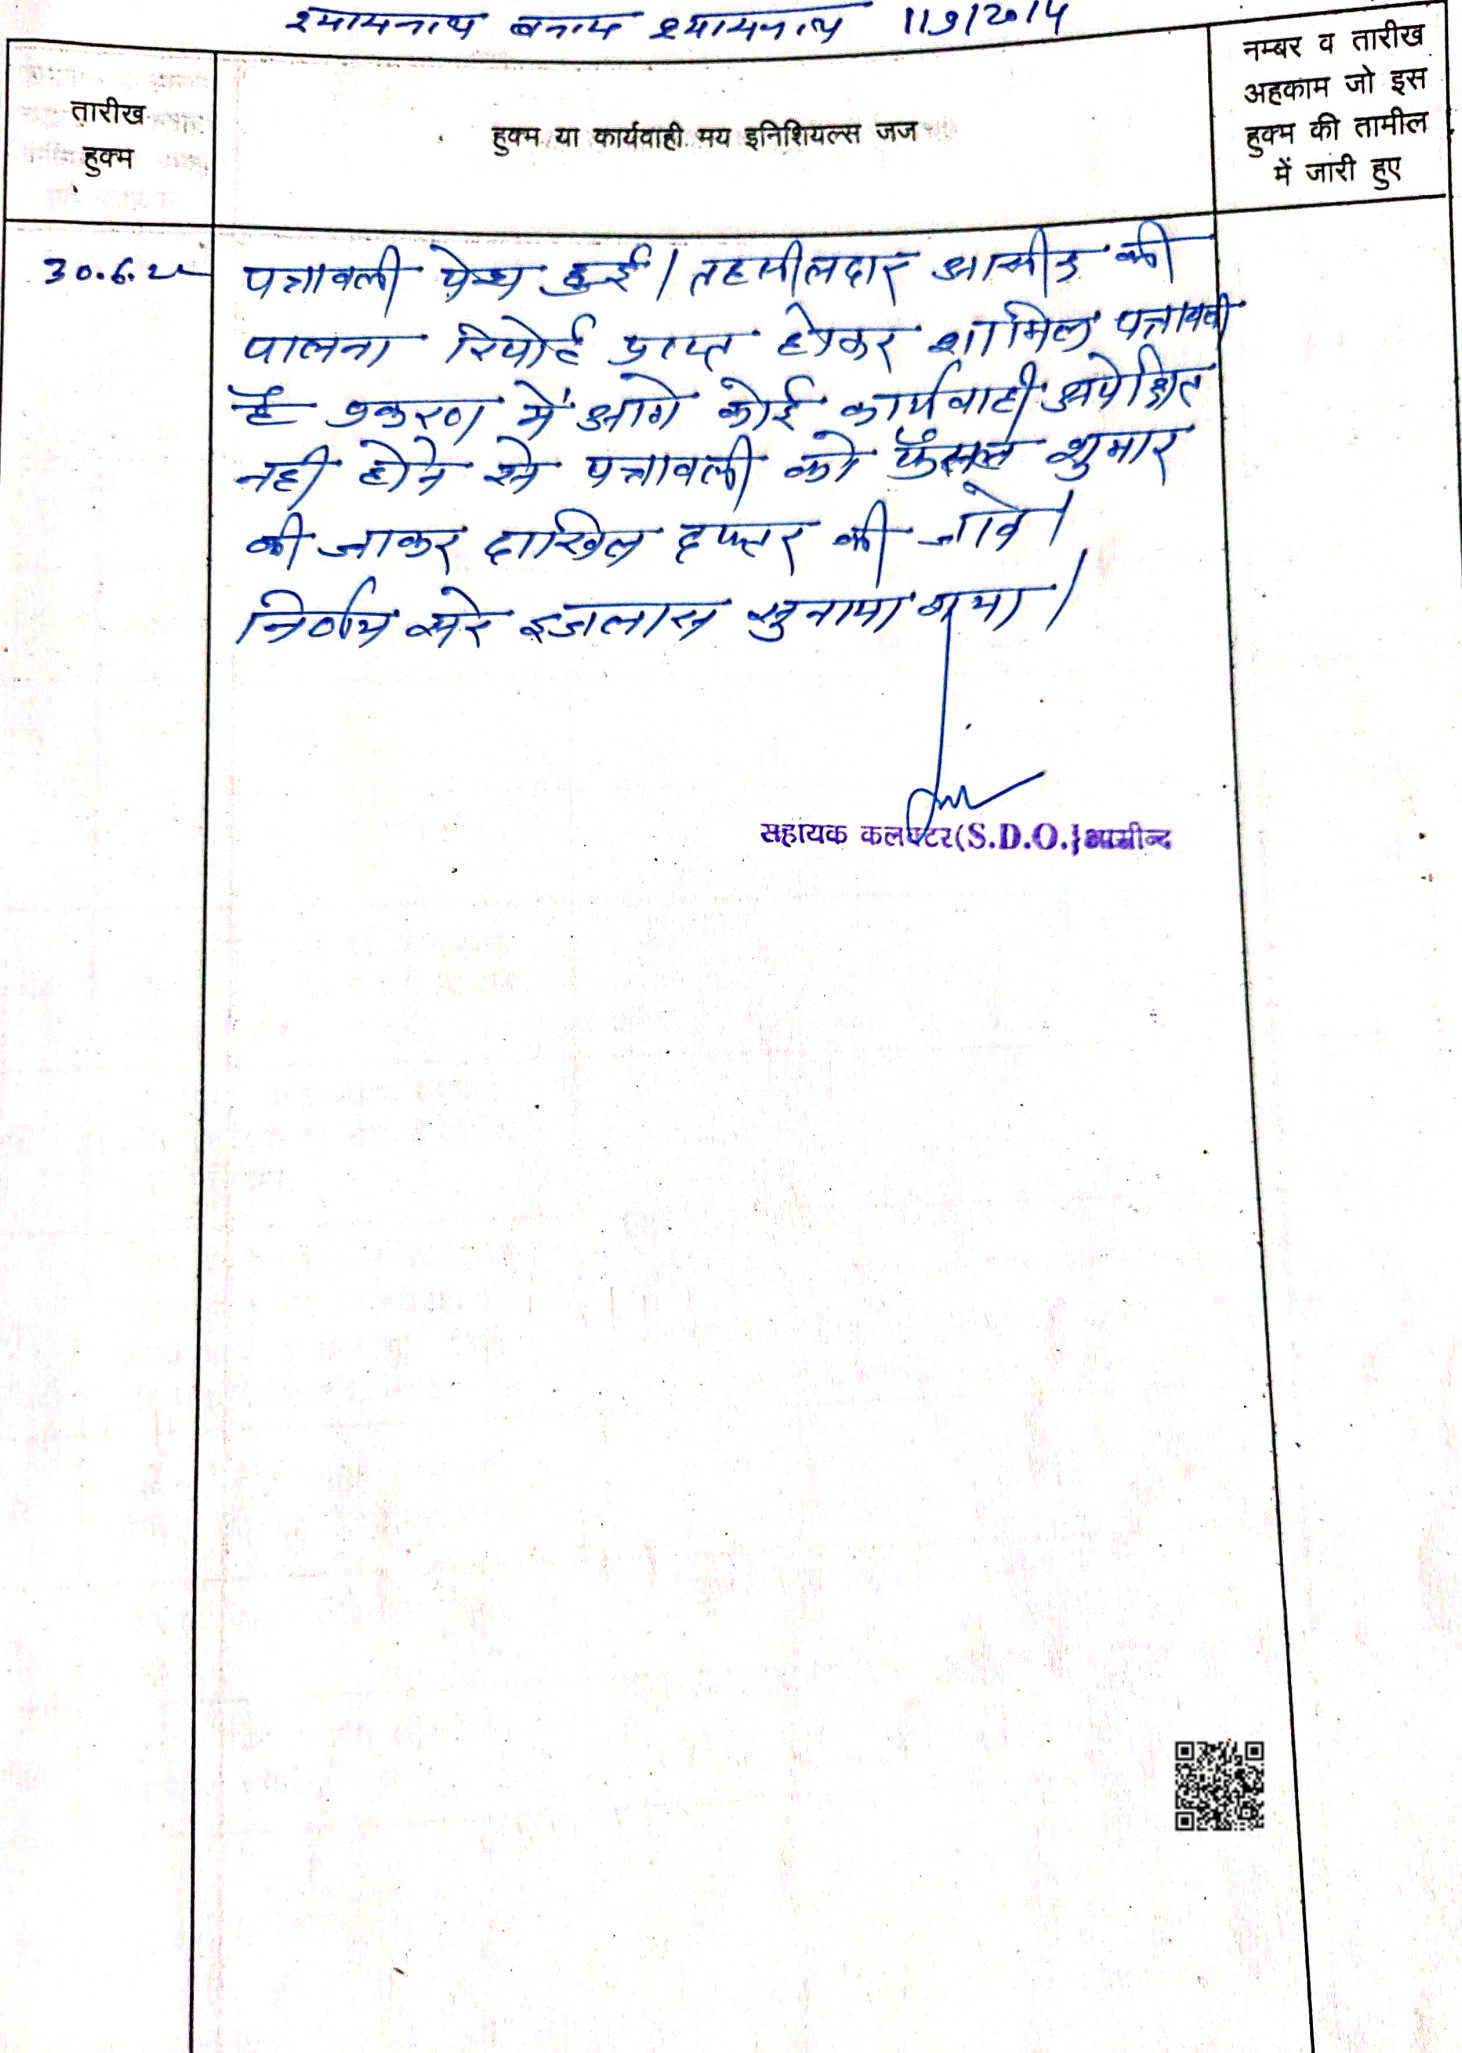 श्यामनाथ बनाम श्यामनाथ 119/2014
तारीख
हुक्म
हुक्म या कार्यवाही मय इनिशियल्स जज
नम्बर व तारीख
अहकाम जो इस
हुक्म की तामील
में जारी हुए
30.6.22
पत्रावली पेश हुई। तहसीलदार आसीन्द की
पालना रिपोर्ट प्राप्त होकर शामिल पत्रावली
है प्रकरण में आगे कोई कार्यवाही अपेक्षित
नही होने से पत्रावली को फैसल शुमार
की जाकर दाखिल दफ्तर की जावे।
निर्णय सरे इजलास सुनाया गया।
सहायक कलक्टर(S.D.O.)आसीन्द